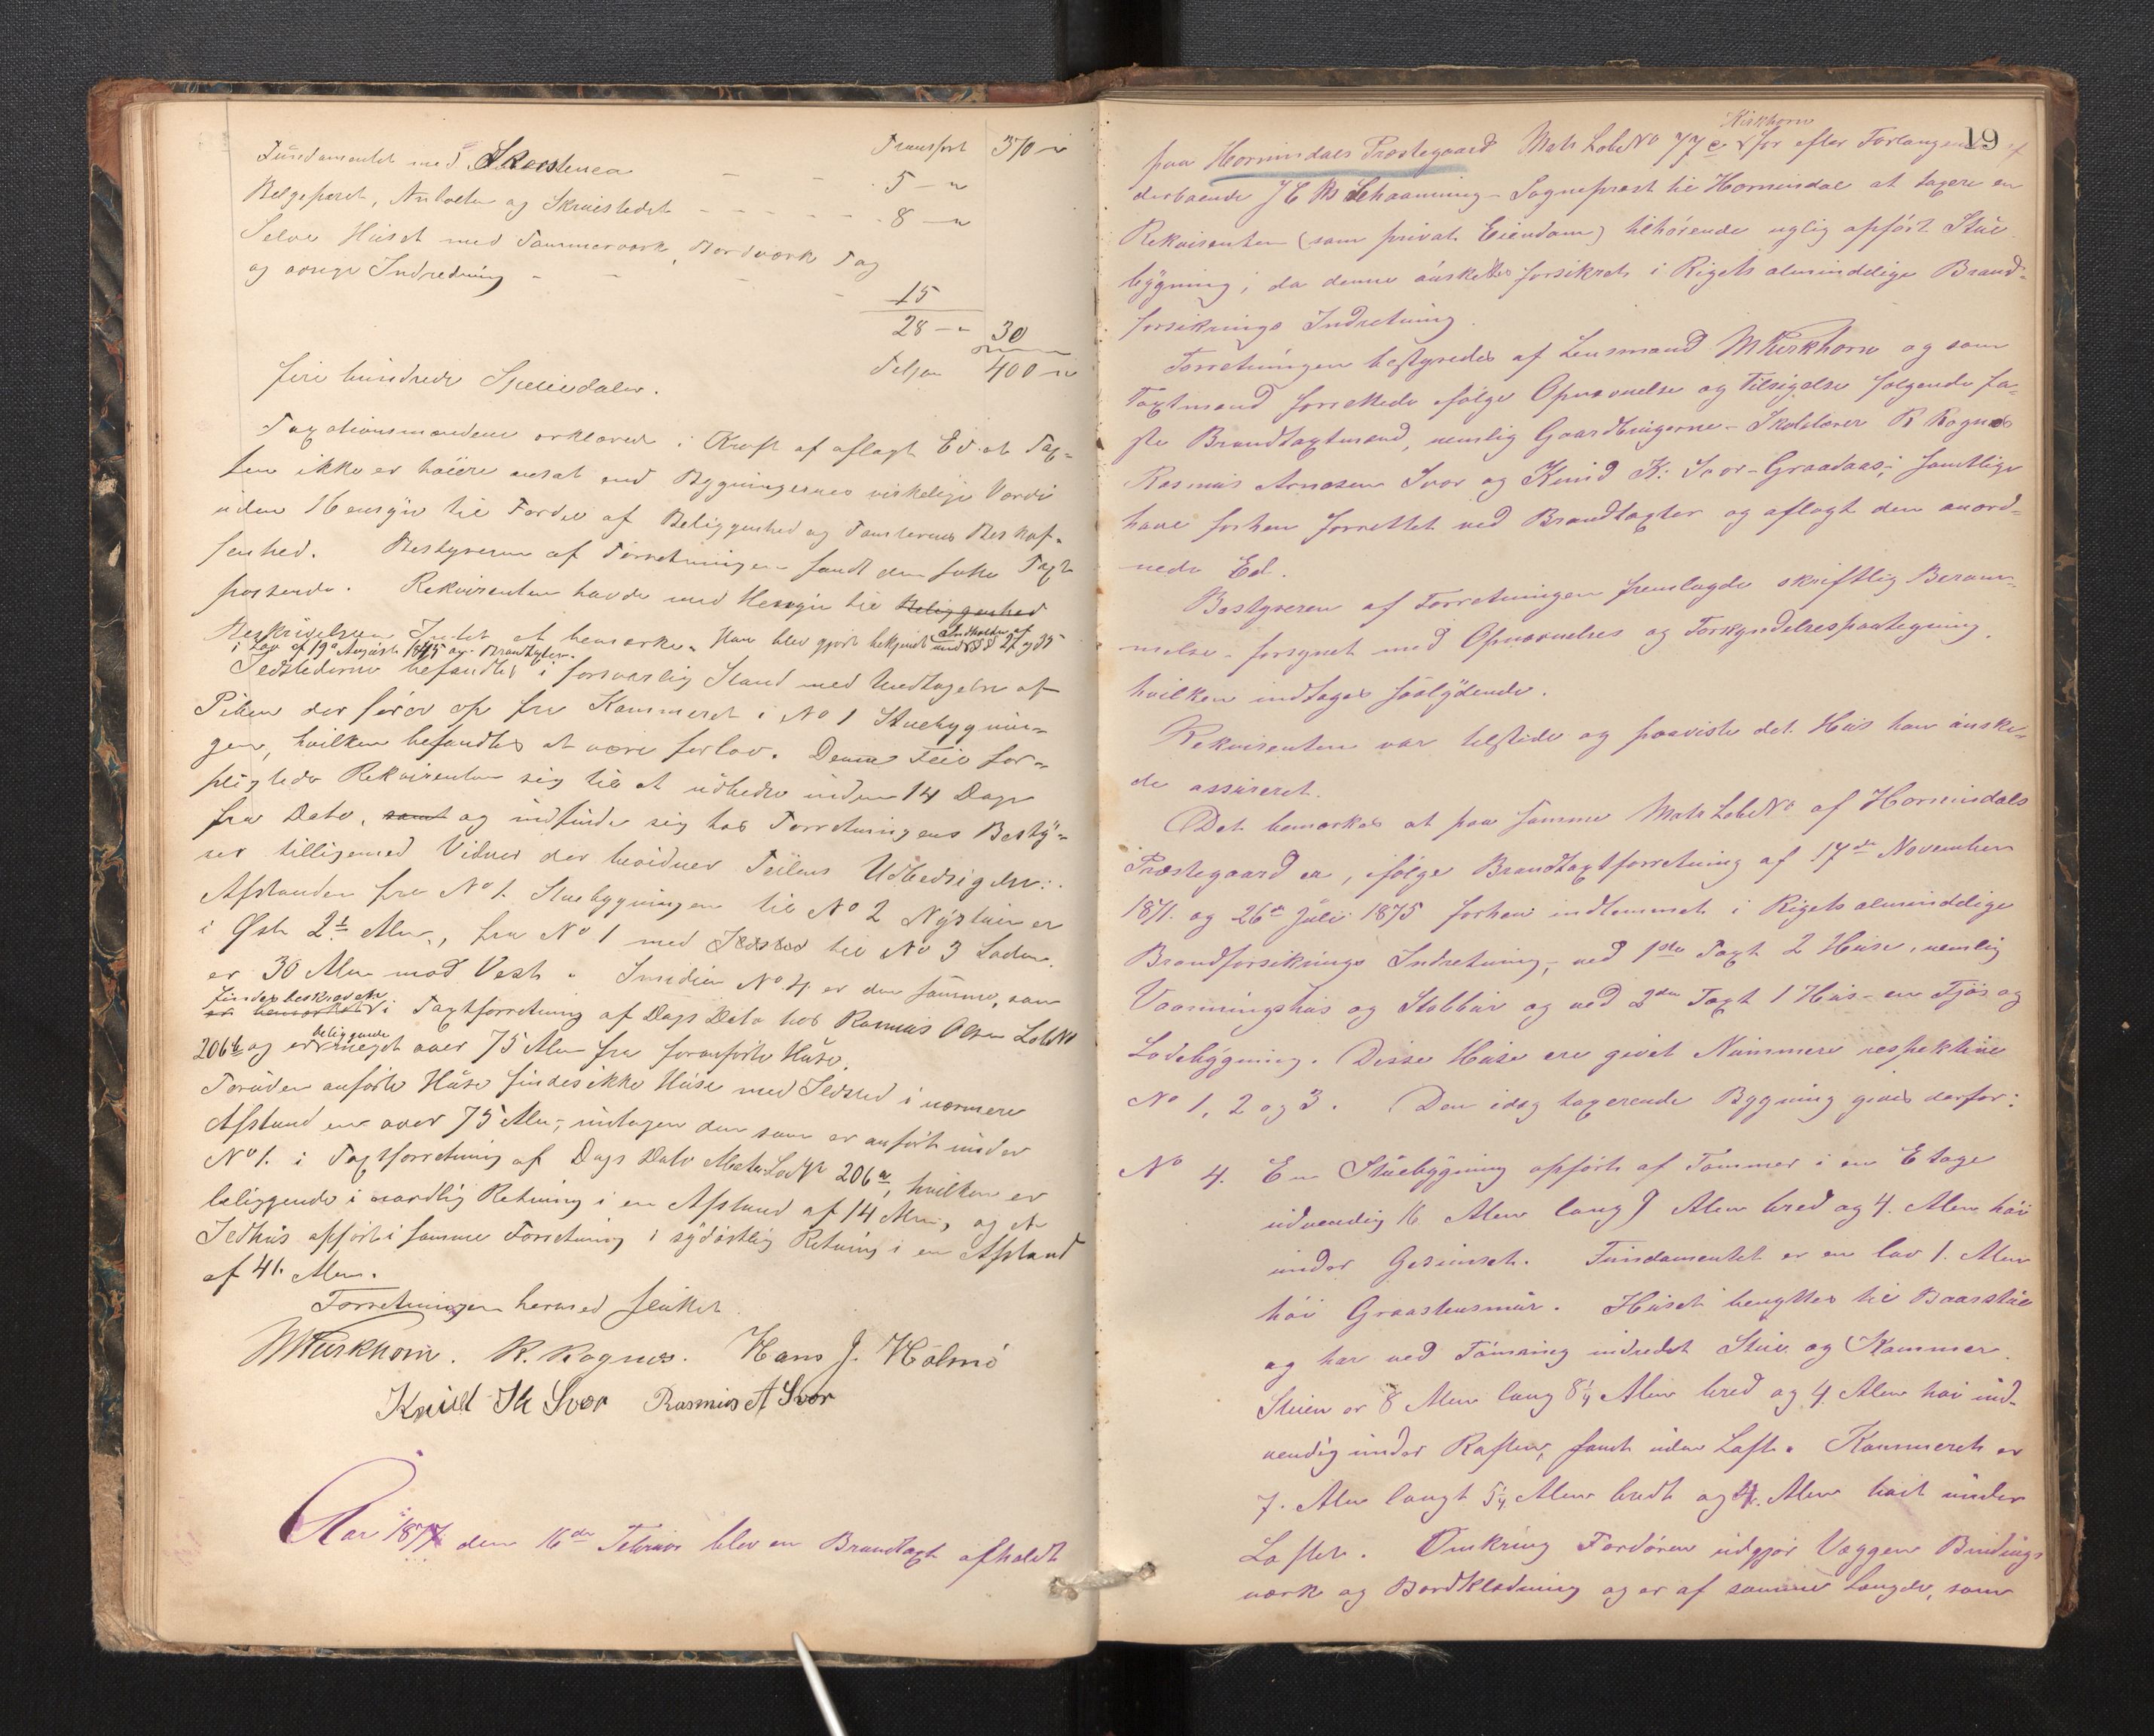 Transport 370 "
Fundamentet med Skorstenen - - 5 - "
Belgeparet, Ambolten og Skruestedet - - - - 8 - "
Selve Huset med Tømmerværk, Bordværk Tag
og øvrige Indredning - - - 15
28 - " 30
Tilsam 400 "
fire hundrede Speciedaler.
Taxationsmændene erklærede i Kraft af aflagt Ed at Tax-
ten ikke er høiere ansat end Bygningernes virkelige Værdi
uden Hensyn til Fordel af Beliggenhed og Tomternes Beskaf-
fenhed. Bestyreren af Forretningen fandt den satte Taxt
passende. Rekvirenten havde med Hensyn til Beliggenhed
Beskrivelsen Intet at bemærke. Han blev gjort bekjendt med Indholdet af §§ 27 og 35
i Lov af 19de August 1845 og Brandtaxter.
Ildstederne befandtes i forsvarlig Stand med Undtagelse af
Piben der fører op fra Kammeret i No 1 Stuebygnin-
gen, hvilken befandtes at være for lav. Denne Feil for-
pligtede Rekvirenten sig til at udbedre inden 14 Dage
fra Dato, samt og indfinde sig hos Forretningens Besty-
rer tilligemed Vidner der bevidner Feilens Udbedrigelse.
Afstanden fra No 1. Stuebygningen til No 2 Nystuen er
i Øst 2½ Alen, fra No 1 med Ildsted til No 3 Laden
er 30 Alen mod Vest. Smidien No 4 er den samme, som
findes beskreven
er bemærket i Taxtforretning af Dags Dato hos Rasmus Olsen LobeNo
beliggende
206b og er meget over 75 Alen fra foranførte Huse.
Foruden anførte Huse findes ikke Huse med Ildsted i nærmere
Afstand en over 75 Alen, undtagen den som er anført under
No 1. i Taxtforretning af Dags Dato Matr LobNr 206a, hvilken er
beliggende i nordlig Retning i en Afstand af 14 Alen, og et
Ildhus opført i samme Forretning i sydøstlig Retning i en Afstand
af 41. Alen.
Forretningen hermed sluttet
MKirkhorn. R. Rognes. Hans J. Holmö
Knud K Svor Rasmus A Svor
Aar 1877 den 16de Februar blev en Brandtaxt afholdt
19
Kirkhorn
paa Hornindals Præstegaard Matr LobeNo 77c for efter Forlangende af
derboende J C B Schaanning - Sogneprest til Hornindal at taxere en
Rekvirenten (som privat Eiendom) tilhørende nylig opført Stue
bygning, da denne ønskedes forsikret i Rigets almindelige Brand-
forsikrings Indretning.
Forretningen bestyredes af Lensmand MKirkhorn og som
Taxtmænd forrettede ifølge Opnævnelse og Tilsigelse følgende fa-
ste Brandtaxtmænd, nemlig Gaardbrugerne - Skolelærer R Rognes
Rasmus Arnesen Svor og Knud K: Svor - Graadaas; samtlige
have forhen forrettet ved Brandtaxter og aflagt den anord-
nede Ed.
Bestyreren af Forretningen fremlagde skriftlig Beram-
melse - forsynet med Opnævnelses og Forkyndelsespaategning.
hvilken indtages saalydende.
Rekvirenten var tilstede og paaviste det Hus han ønske-
de assureret.
Det bemærkes at paa samme Matr LobeNo af Hornindals
Præstegaard er, ifølge Brandtaxtforretning af 17de November
1871. og 26de Juli 1875 forhen indlemmet i Rigets almindelige
Brandforsikrings Indretning, ved 1ste Taxt 2 Huse, nemlig
Vaaningshus og Stabbur og ved 2den Taxt 1 Hus - en Fjøs og
Ladebygning. Disse Huse ere givet Nummere respektive
No 1, 2 og 3. Den idag taxerende Bygning gives derfor:
No 4. En Stuebygning opført af Tømmer i en Etage
udvendig 16 Alen lang 9 Alen bred og 4. Alen høi
under Gesimset. Fundamentet er en lav 1. Alen
høi Graastensmur. Huset benyttes til Baarstue
og har ved Tømring indredet Stue og Kammer.
Stuen er 8 Alen lang 8¼ Alen bred og 4 Alen høi ind-
vendig under Raften, samt uden Loft. Kammeret er
7. Alen langt 5¼ Alen bredt og 4. Alen høit under
Loftet. Omkring Fordøren udgjør Væggen Bindings
værk og Bordklædning og er af samme Længde, som